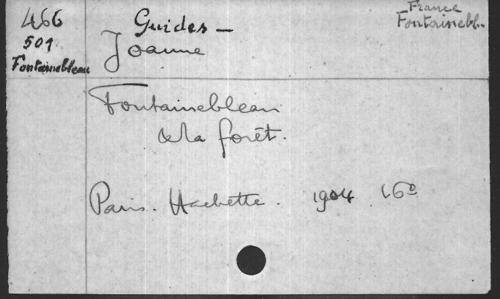 466
501
Fontainebleau
Guides –
Joanne
France
Fontainebl.
Fontainebleau
& la forêt.
Paris. Hachette. 1904 16º